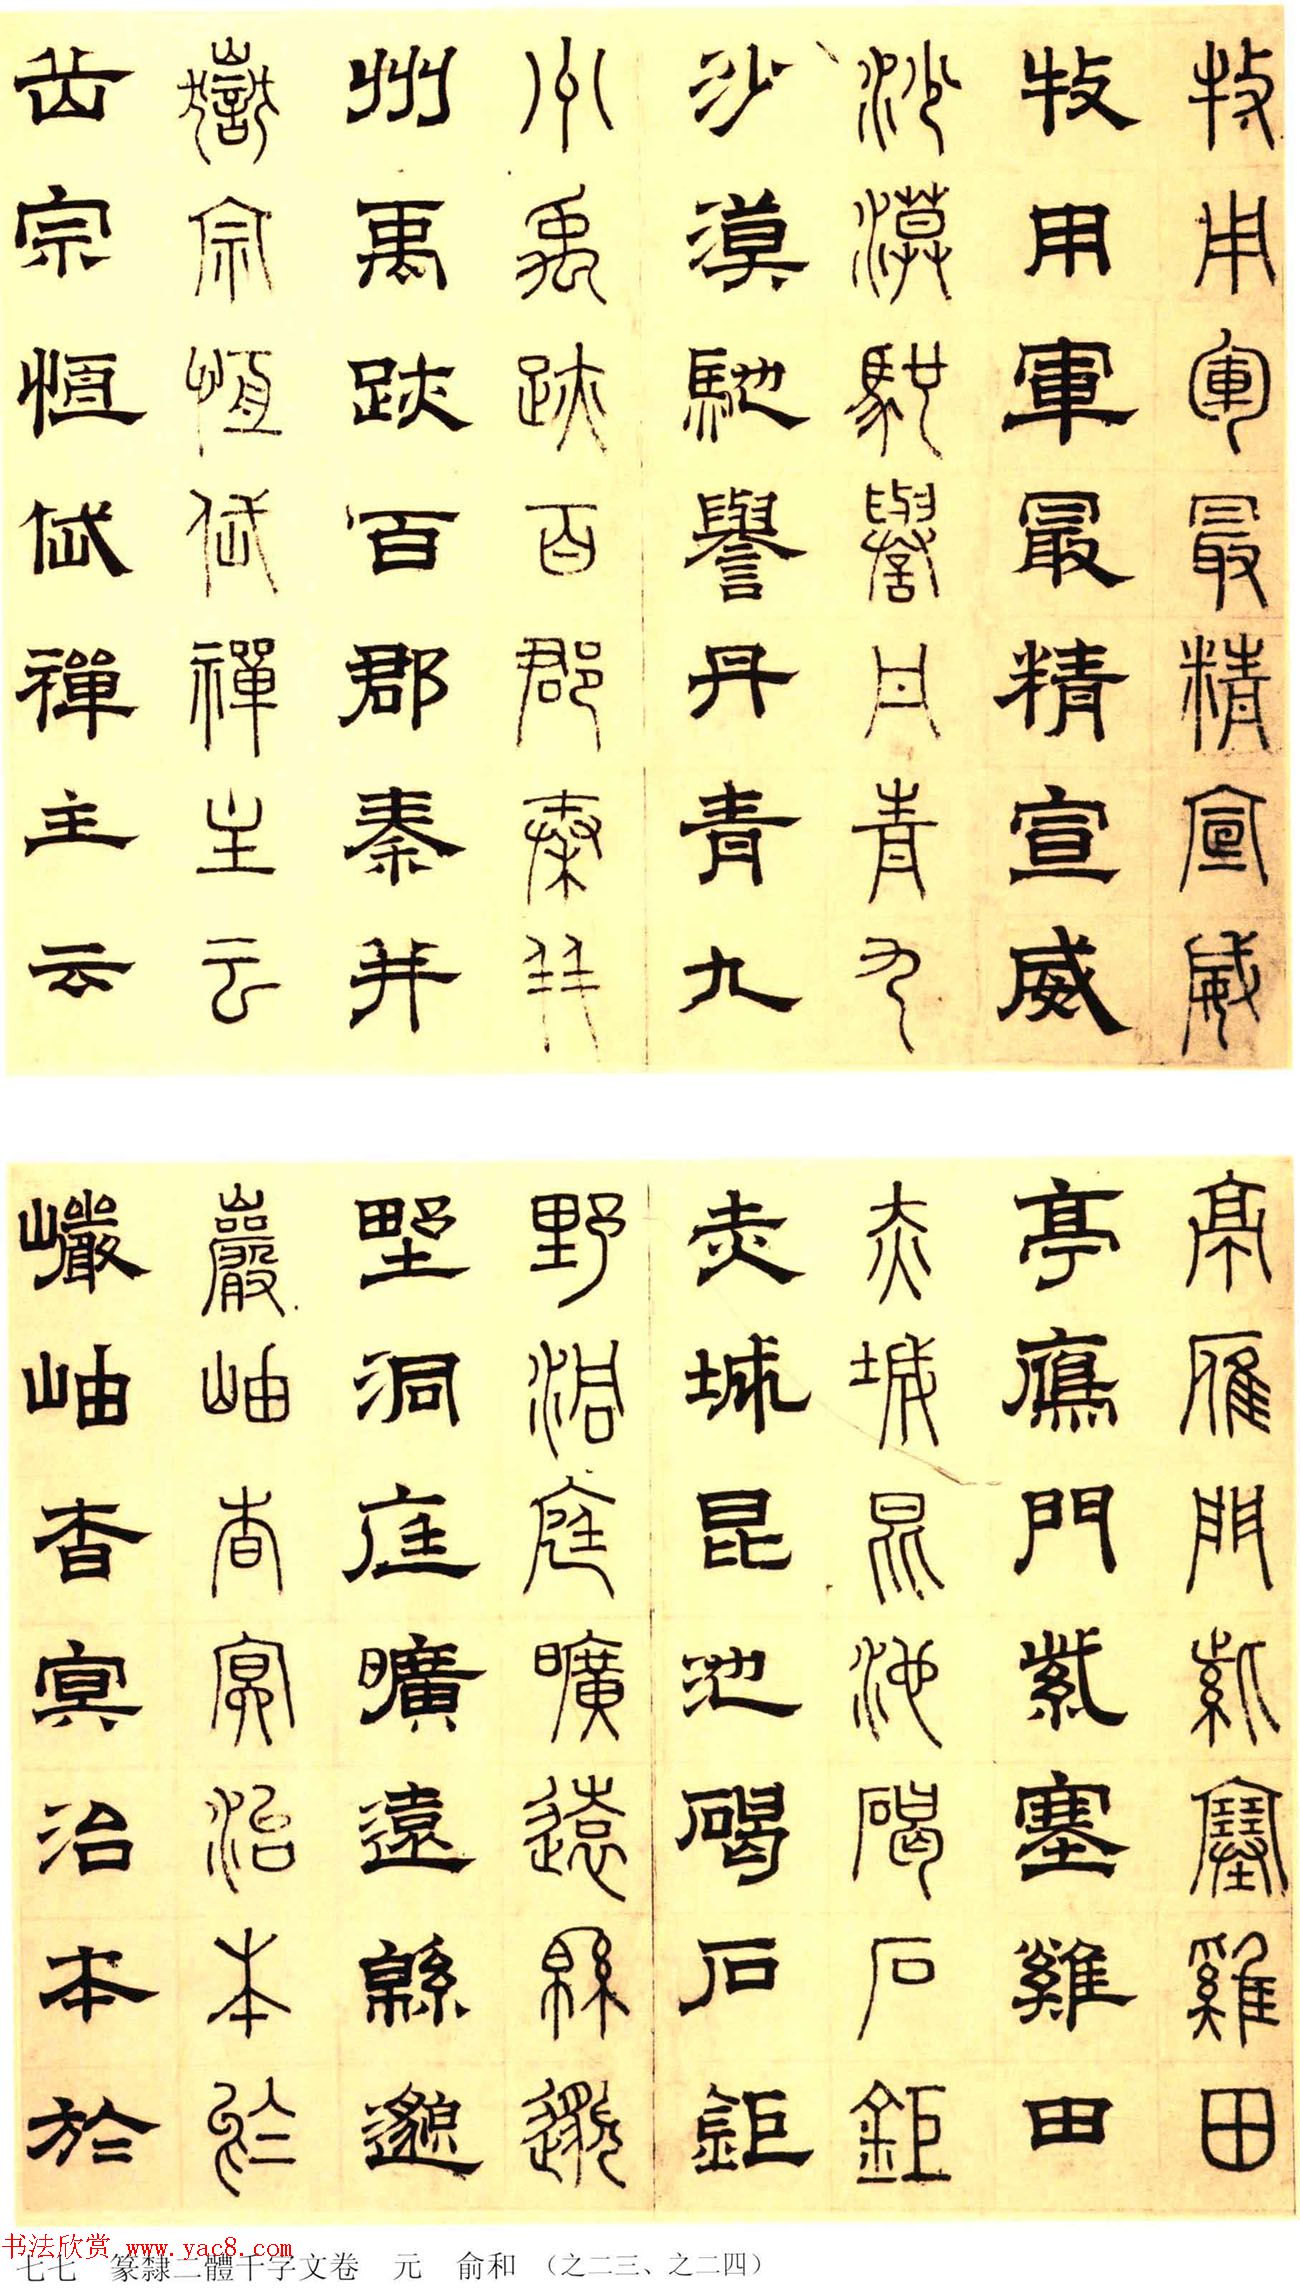 牧用軍最精宣威
牧用軍最精宣威
沙漠馳譽丹青九
沙漠馳譽丹青九
州禹跡百郡秦并
州禹跡百郡秦并
嶽宗恒岱禪主云
岳宗恒岱禪主云
亭雁門紫塞雞田
亭鴈門紫塞雞田
赤城昆池碣石鉅
赤城昆池碣石鉅
野洞庭曠遠緜邈
野洞庭曠遠緜邈
巖岫杳冥治本於
巖岫杳冥治本於
书法欣赏 www.yac8.com
七七 篆隸二體千字文卷 元 俞和 （之二三、之二四）